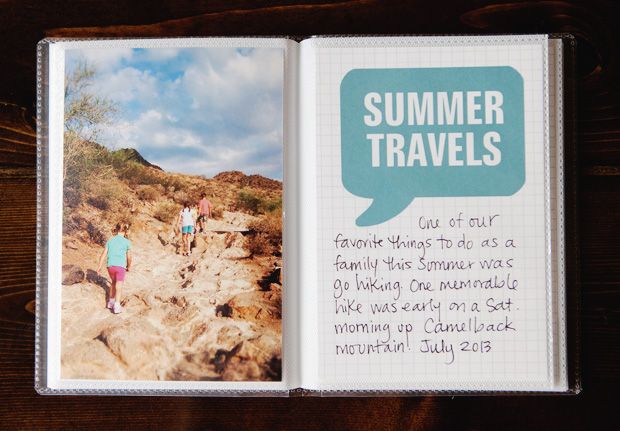 SUMMER
TRAVELS
One of our
favorite things to do as a
family this Summer was
go hiking. One memorable
hike was early on a Sat.
morning up Camelback
mountain! July 2013